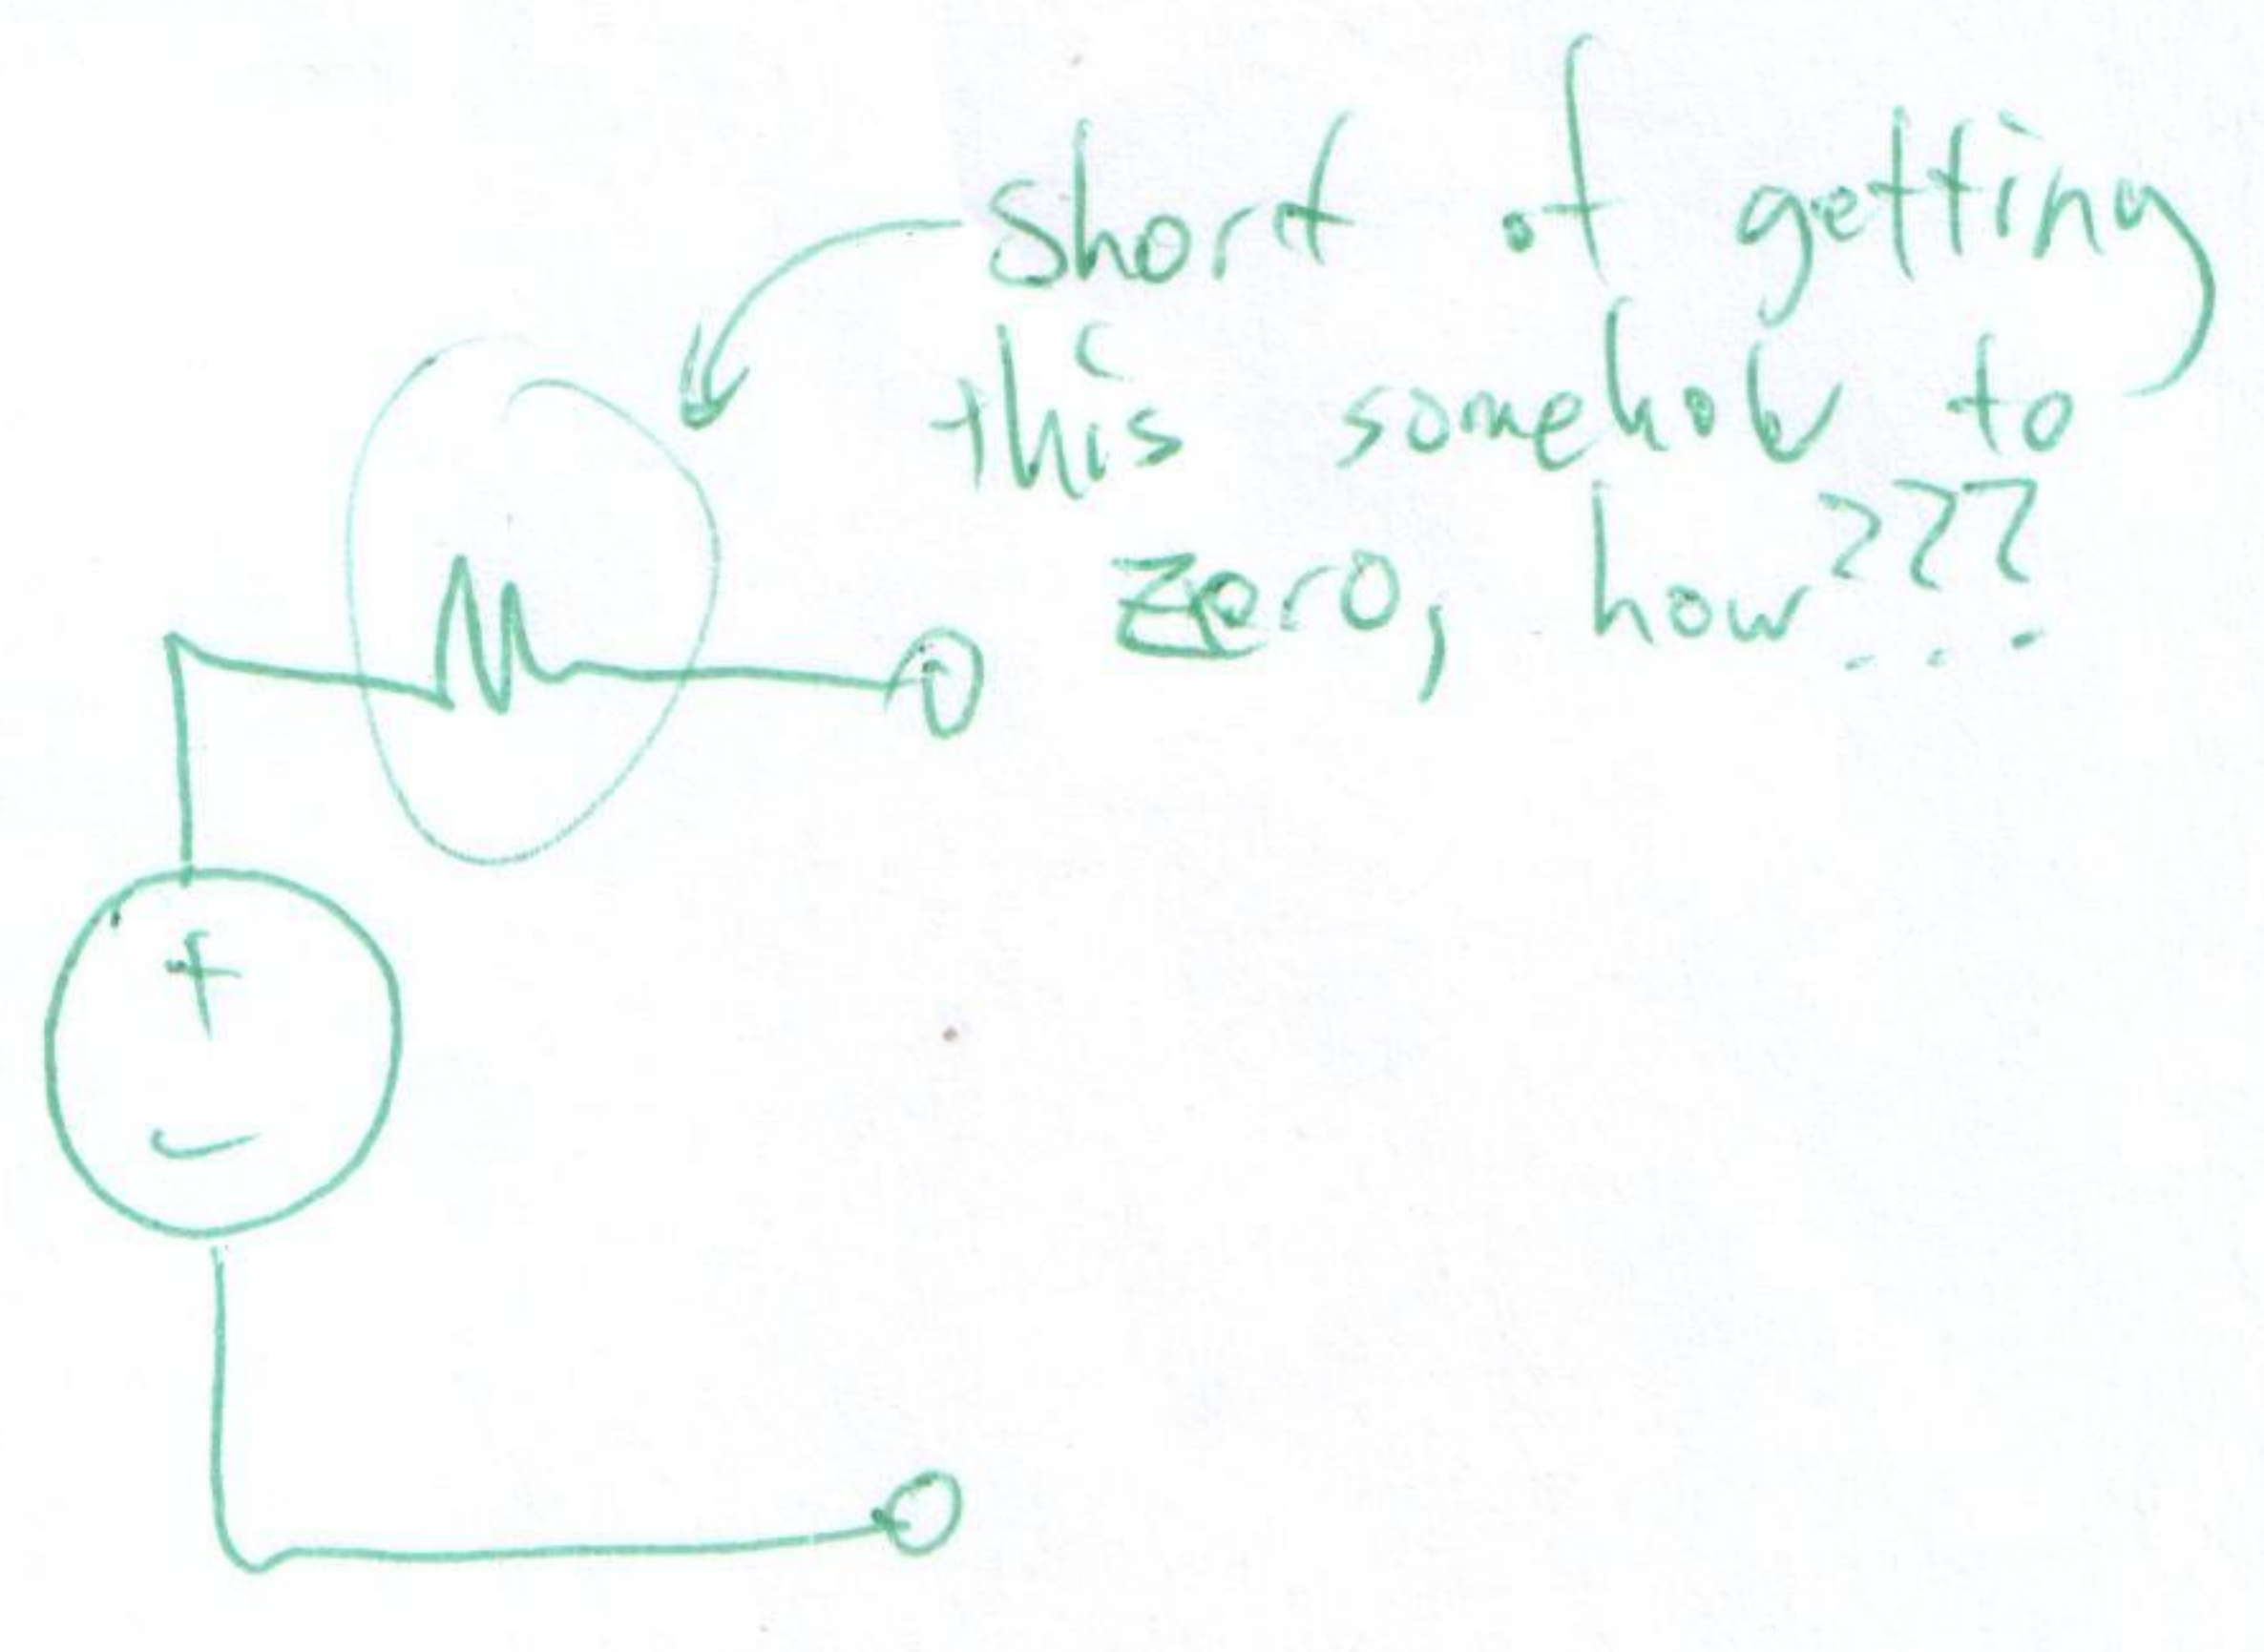 short of getting
this somehow to
zero, how???
+
-